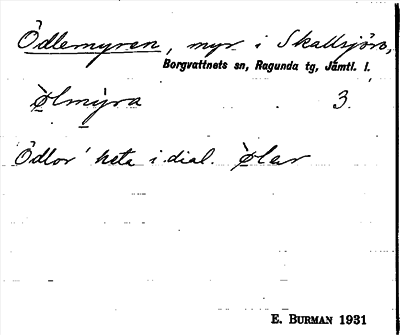 Ödlemyren, myr i Skallsjön,
Borgvattnets sn, Ragunda tg, Jämtl. l.
Ø̀lmýra 3
'Ödlor' heta i dial. Ø̀lar
E. BURMAN 1931